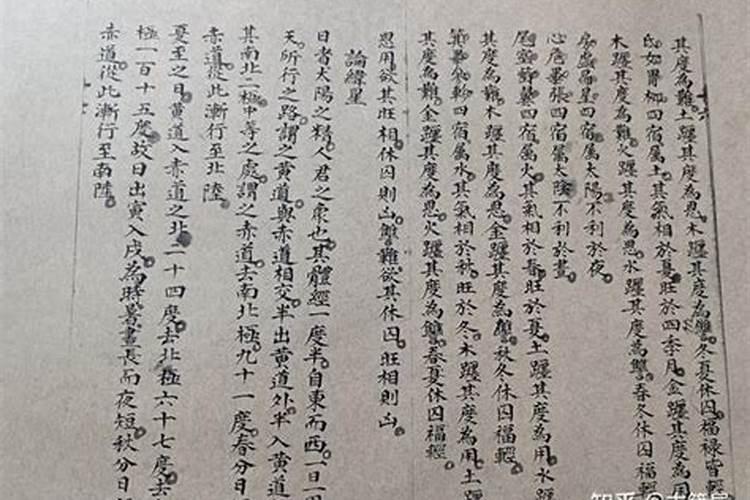 其度為難土躔其度為恩木躔其度為讐冬夏休囚福祿皆輕
氐女胃柳四宿屬土其氣相於夏旺於四季月金躔其度為用
木躔其度為難火躔其度為恩水躔其度為讐春冬休囚福輕
房虛昴星四宿屬太陽不利於夜
心危畢張四宿屬太陰不利於晝
尾室觜翼四宿屬火其氣相於春旺於夏土躔其度為用水躔
其度為難木躔其度為恩金躔其度為讐秋冬休囚福輕
箕壁參軫四宿屬水其氣相於秋旺於冬木躔其度為用土躔
其度為難金躔其度為恩火躔其度為讐春夏休囚福輕
恩用欲其旺相休囚則凶讐難欲其休囚旺相則凶
論緯星
日者太陽之精人君之象也其體經一度半自東而西一日一
天所行之路謂之黃道與赤道相交半出黃道外半入黃道
其南北二極中等之處謂之赤道去南北極九十一度春分日
赤道從此漸行至北陸
夏至之日黃道入赤道之北二十四度去北極六十七度去
極一百十五度故日出寅入戌為時晷晝長而夜短秋分日
赤道從此漸行至南陸